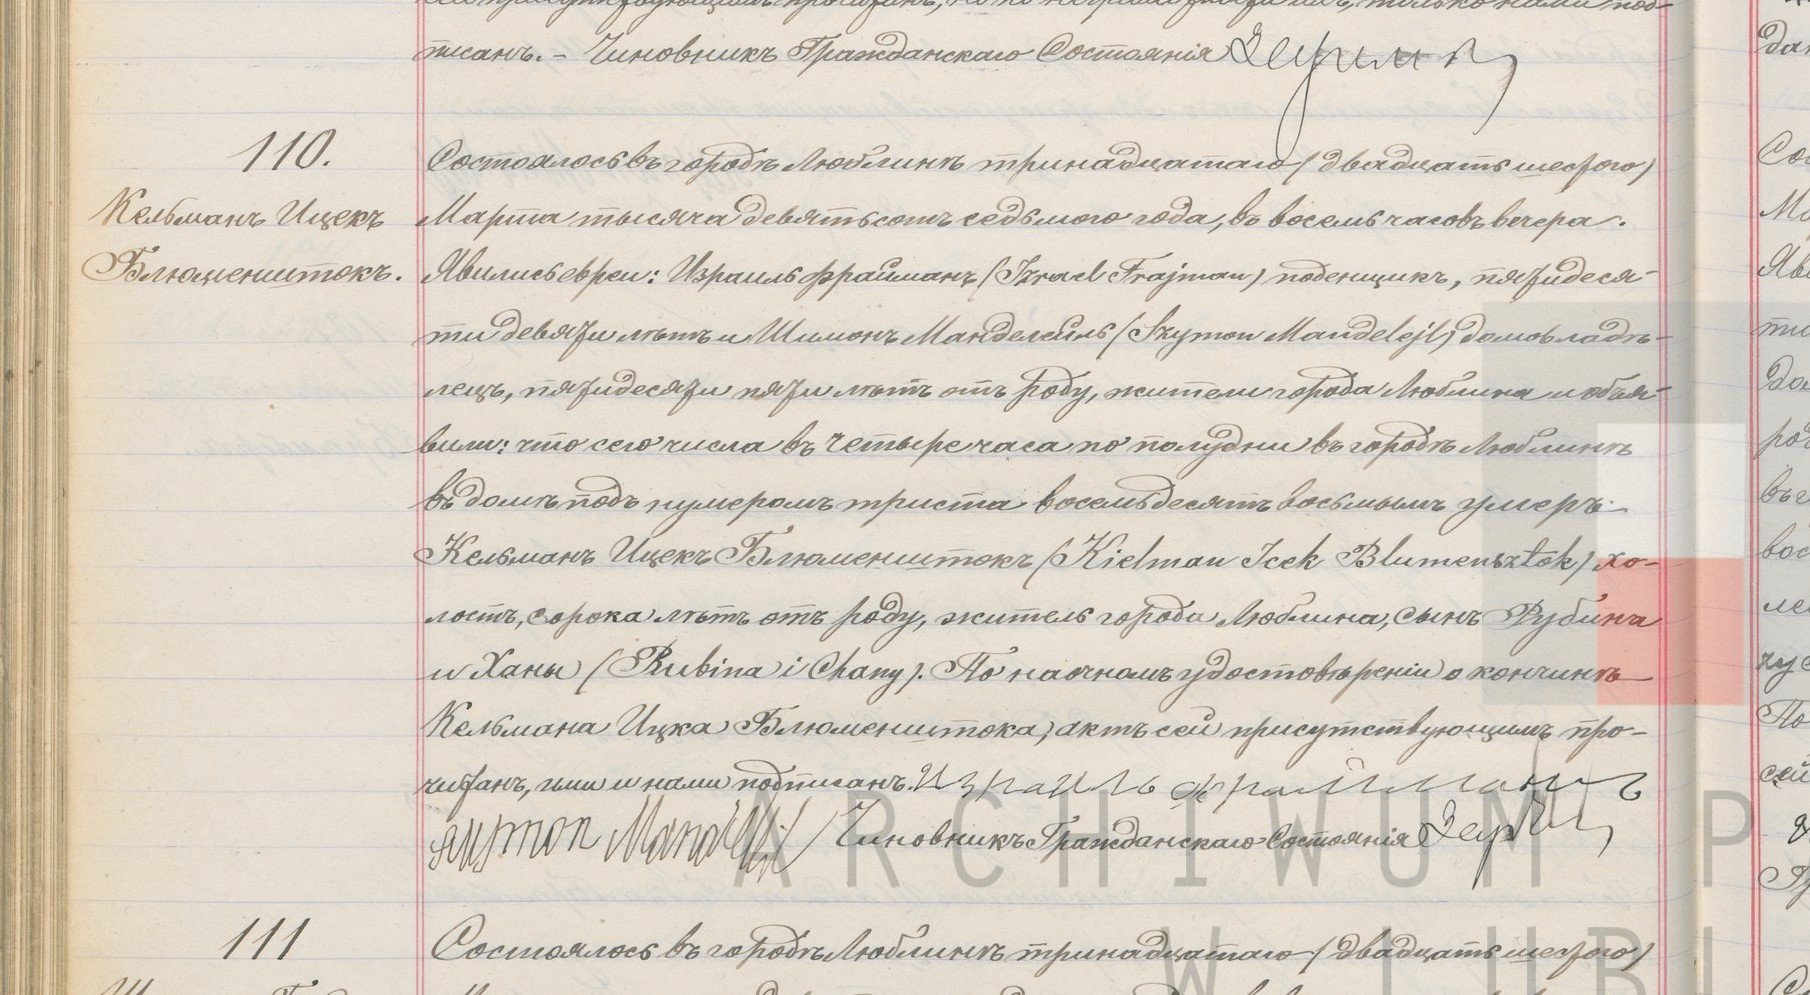 тисанъ. – Чиновникъ Гражданскаго Состоянія
110.
Кельманъ Ицекъ
Блюменштокъ.
Состоялось въ городѣ Люблинѣ тринадцатаго (двадцать шестого)
Марта тысяча девятьсотъ седьмого года, въ восемь часовъ вечера.
Явились евреи: Израиль Фрайманъ (Izrael Frajman) поденщикъ, пятидеся-
ти девяти лѣтъ и Шимонъ Манделейль (Szymon Mandelejl) домовладѣ-
лецъ, пятидесяти пяти лѣтъ отъ роду, жители города Люблина и объя-
вили: что сего числа въ четыре часа по полудни въ городѣ Люблинѣ
въ домѣ подъ нумеромъ триста восемьдесятъ восьмымъ умеръ
Кельманъ Ицекъ Блюменштокъ (Kielman Icek Blumensztok) хо-
лостъ, сорока лѣтъ отъ роду, житель города Люблина, сынъ Рубина
и Ханы (Rubina i Chany). По наочномъ удостовѣреніи о кончинѣ
Кельмана Ицка Блюменштока, актъ сей присутствующимъ про-
читанъ, ими и нами подписанъ. Израиль Фрайманъ
Чиновникъ Гражданскаго Состоянія
111
Состоялось въ городѣ Люблинѣ тринадцатаго (двадцать шестого)
ARCHIWUM P
W LUBL